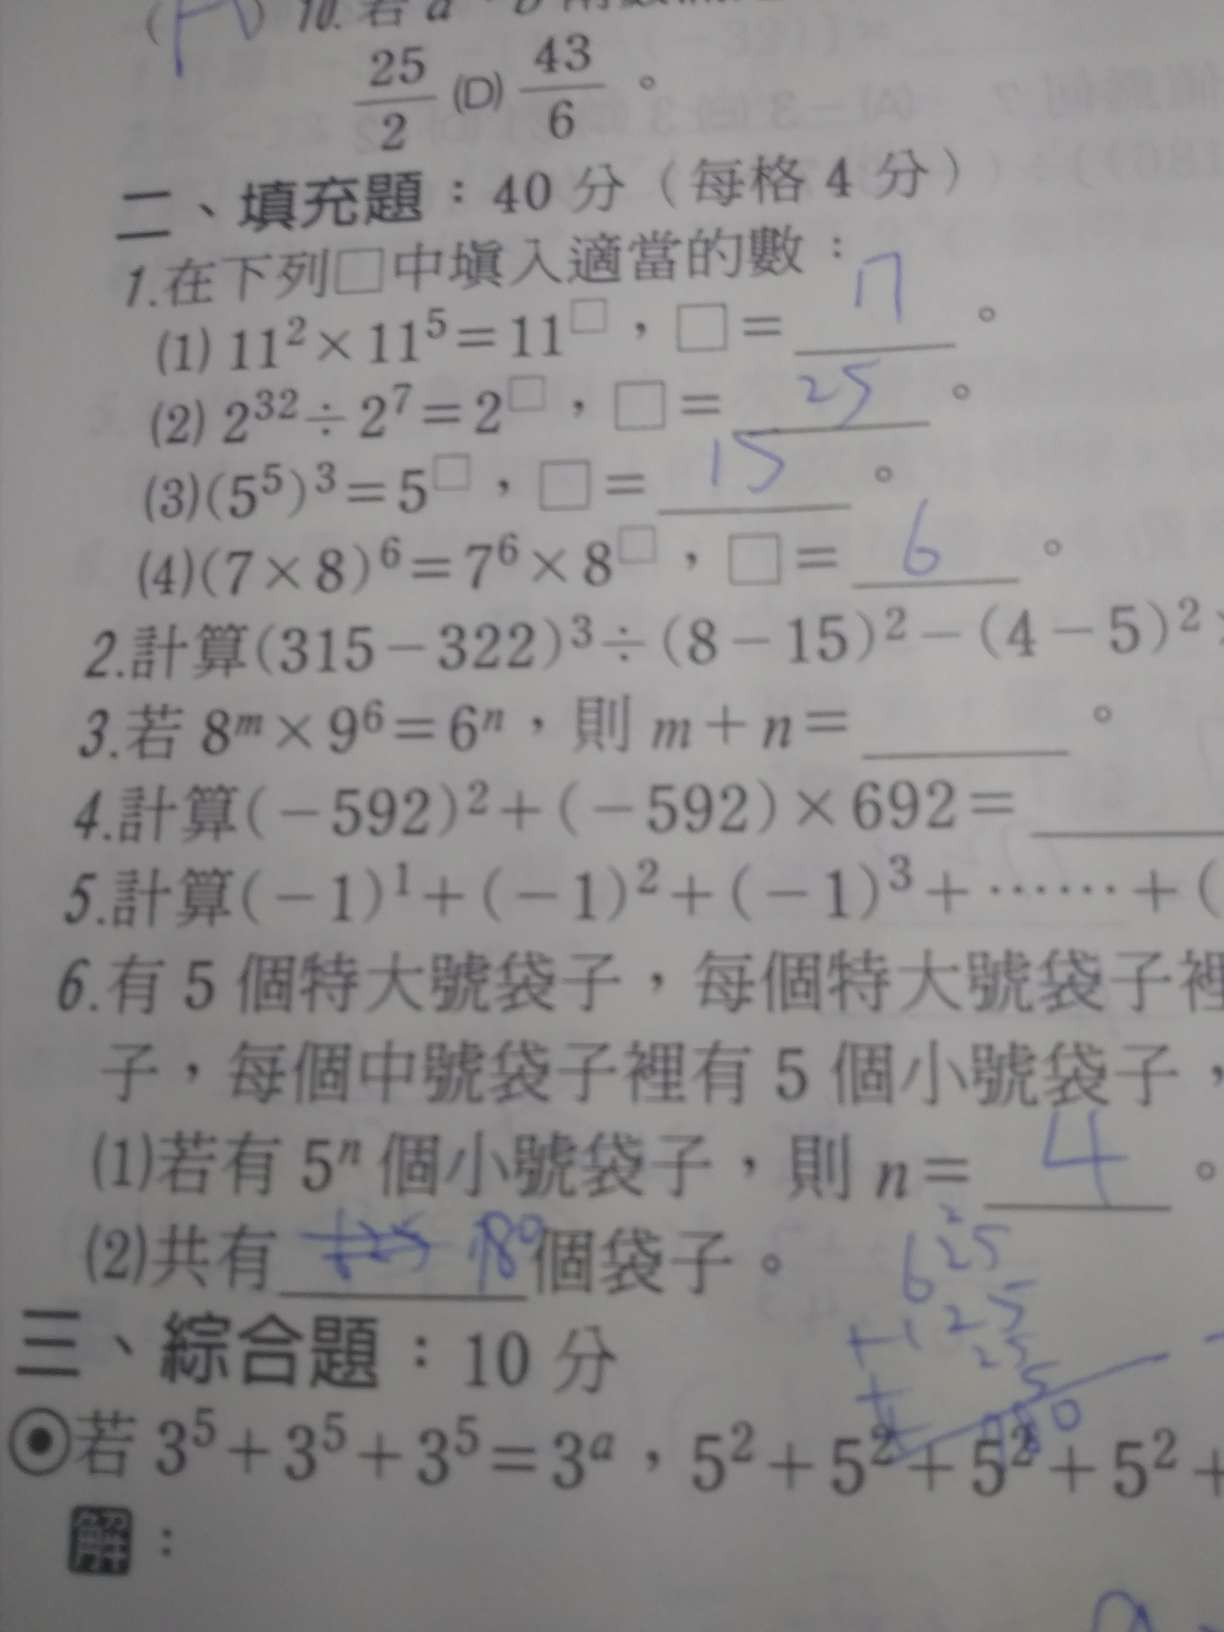 10.若 a
25/2 (D) 43/6 。
二、填充題：40 分（每格 4 分）
1.在下列□中填入適當的數：
(1) 11²×11⁵=11^□，□= 7 。
(2) 2³²÷2⁷=2^□，□= 25 。
(3)(5⁵)³=5^□，□= 15 。
(4)(7×8)⁶=7⁶×8^□，□= 6 。
2.計算(315－322)³÷(8－15)²－(4－5)²
3.若 8ᵐ×9⁶=6ⁿ，則 m＋n=______。
4.計算(－592)²＋(－592)×692=______
5.計算(－1)¹＋(－1)²＋(－1)³＋……＋(
6.有 5 個特大號袋子，每個特大號袋子裡
子，每個中號袋子裡有 5 個小號袋子，
(1)若有 5ⁿ 個小號袋子，則 n= 4 。
(2)共有 780 個袋子。
625
＋125
25
5
780
三、綜合題：10 分
若 3⁵＋3⁵＋3⁵=3ᵃ，5²＋5²＋5²＋5²＋
解：